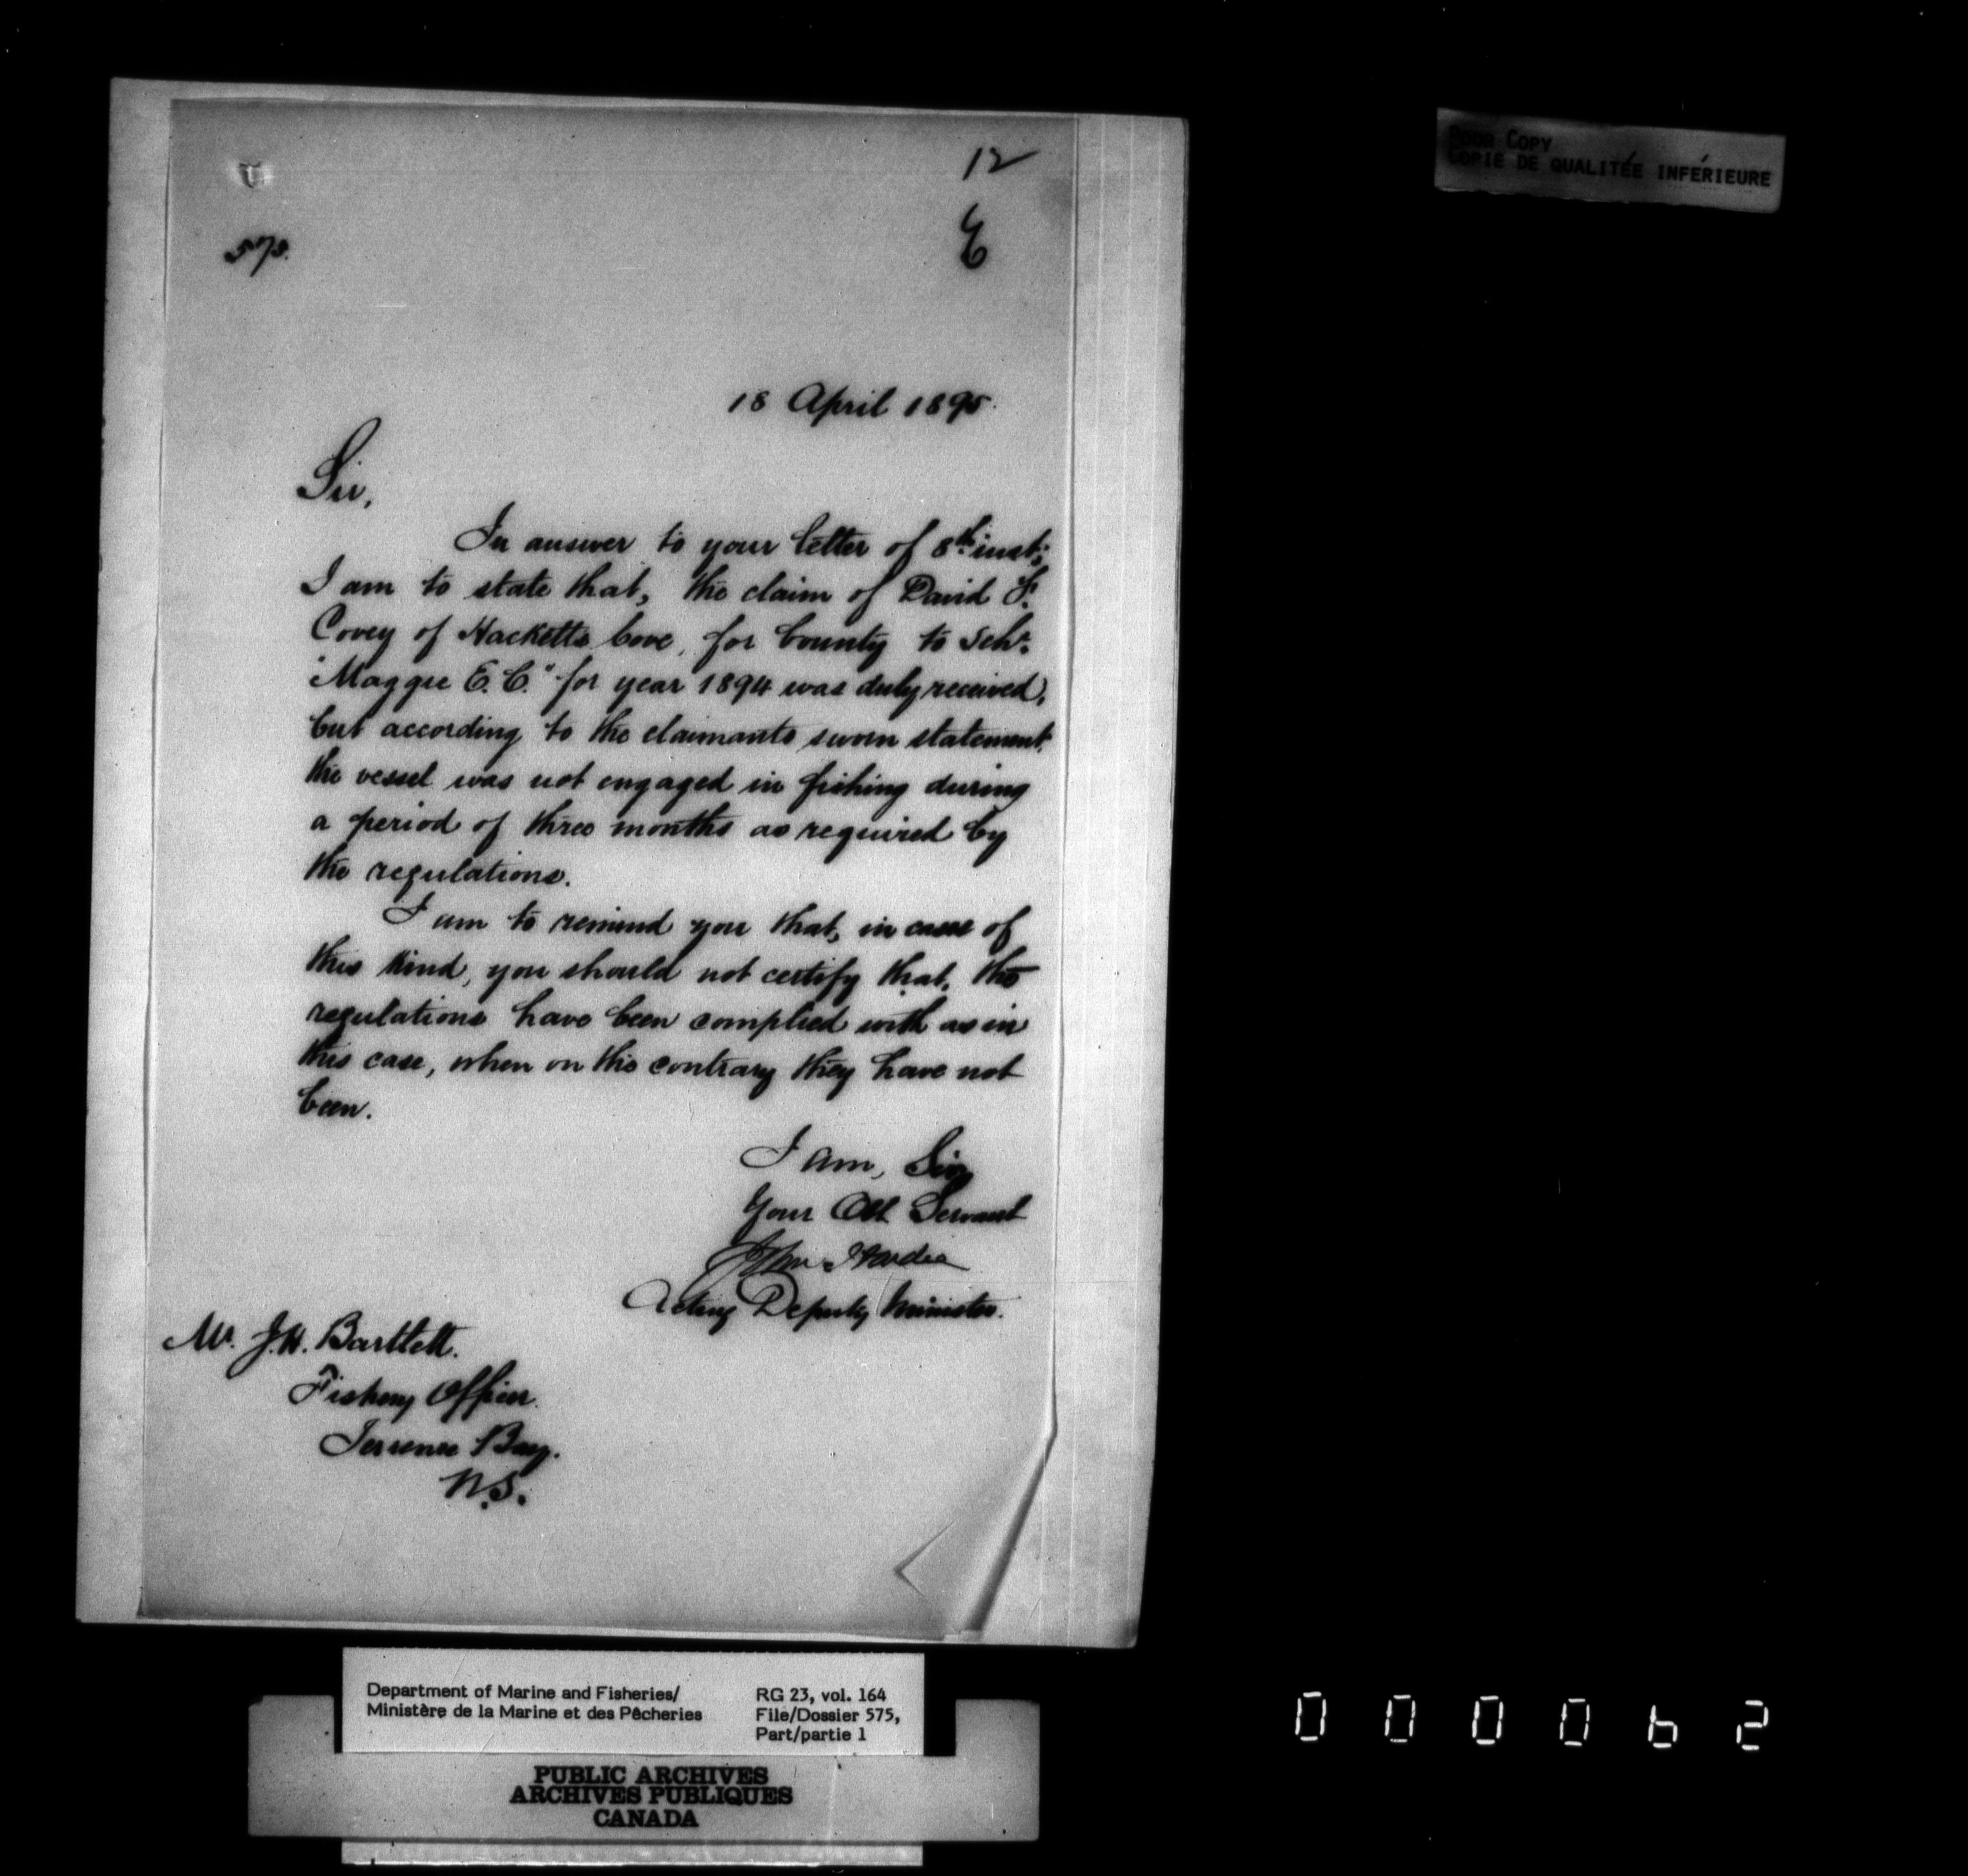 12
E
575.
POOR COPY
COPIE DE QUALITÉE INFÉRIEURE
18 April 1895.
Sir,
In answer to your letter of 8th inst;
I am to state that, the claim of David F.
Covey of Hacketts Cove, for bounty to Schr.
"Maggie E.C." for year 1894 was duly received,
but according to the claimants sworn statement,
the vessel was not engaged in fishing during
a period of three months as required by
the regulations.
I am to remind you that, in cases of
this kind, you should not certify that, the
regulations have been complied with as in
this case, when on the contrary they have not
been.
I am, Sir,
Your Obt Servant
John Hardie
Acting Deputy Minister.
Mr. J.H. Bartlett.
Fishery Officer.
Terrence Bay.
N.S.
Department of Marine and Fisheries/
Ministère de la Marine et des Pêcheries
RG 23, vol. 164
File/Dossier 575,
Part/partie 1
PUBLIC ARCHIVES
ARCHIVES PUBLIQUES
CANADA
000062